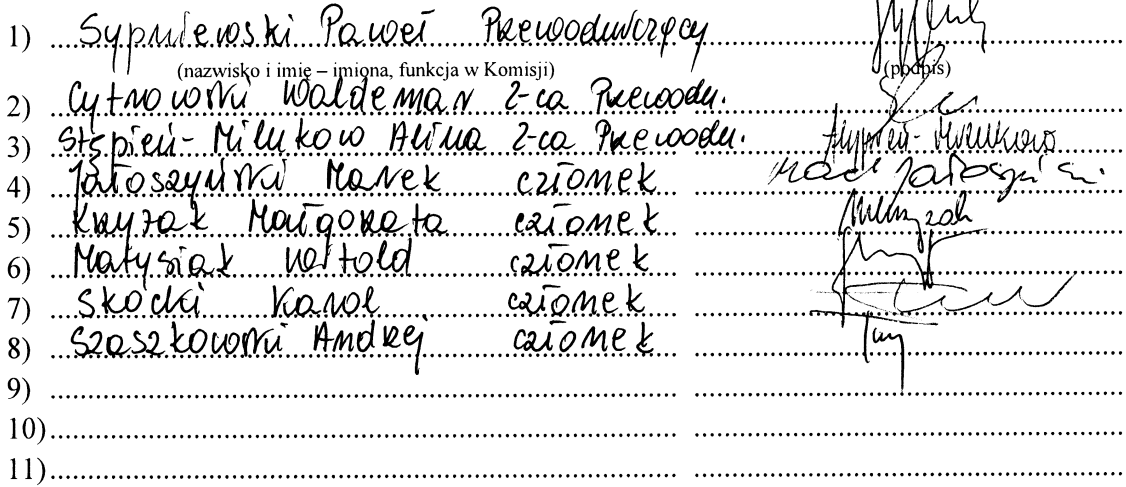 1) Sypniewski Paweł Przewodniczący
(nazwisko i imię – imiona, funkcja w Komisji) (podpis)
2) Cytnowski Waldemar Z-ca Przewodn.
3) Stępień-Milukow Alina Z-ca Przewodn.
4) Jałoszyński Marek członek
5) Krzyżak Małgorzata członek
6) Matysiak Witold członek
7) Skocki Karol członek
8) Szaszkowski Andrzej członek
9)
10)
11)